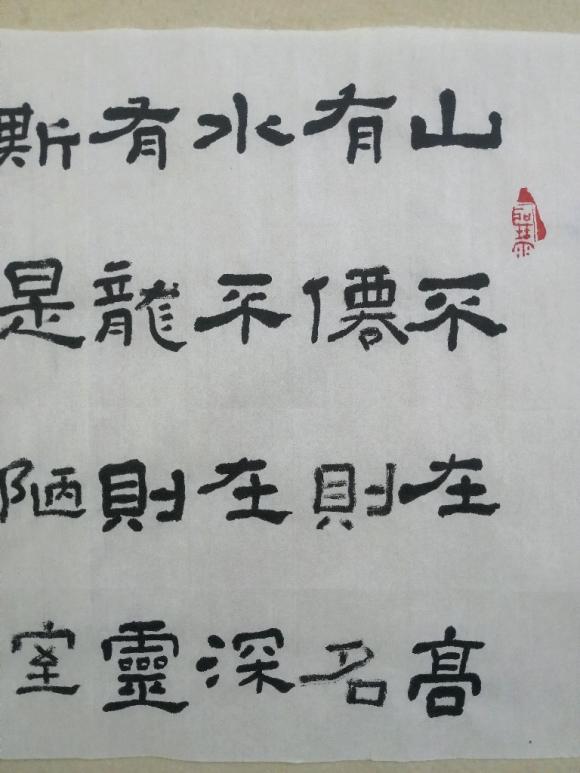 山不在高
有僊則名
水不在深
有龍則靈
斯是陋室